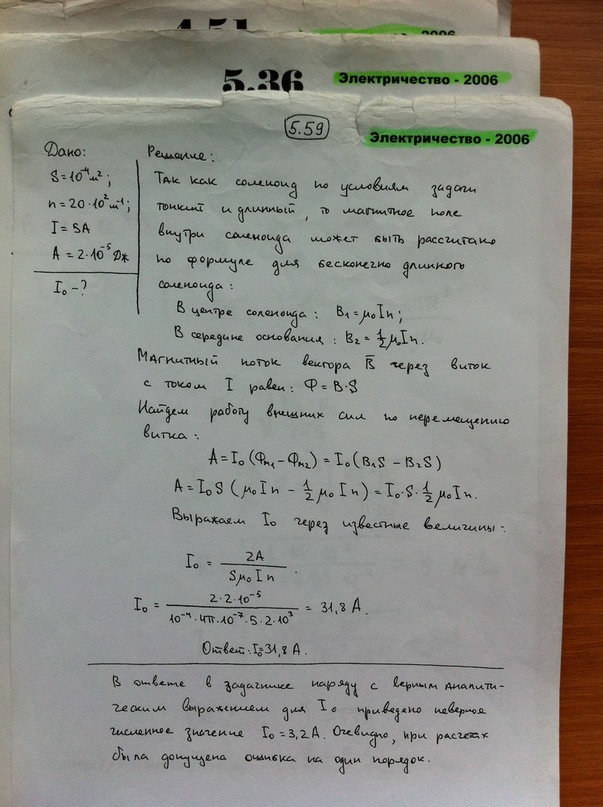 4.51
2006
5.36
Электричество - 2006
5.59
Электричество - 2006
Дано:
S = 10⁻⁴ м²;
n = 20·10² м⁻¹;
I = 5А
A = 2·10⁻⁵ Дж
I₀ - ?
Решение:
Так как соленоид по условиям задачи
тонкий и длинный, то магнитное поле
внутри соленоида может быть рассчитано
по формуле для бесконечно длинного
соленоида:
В центре соленоида: B₁ = μ₀In;
В середине основания: B₂ = ½μ₀In.
Магнитный поток вектора B̄ через виток
с током I равен: Ф = B·S
Найдем работу внешних сил по перемещению
витка:
A = I₀(Фм₁ - Фм₂) = I₀(B₁S - B₂S)
A = I₀S(μ₀In - ½μ₀In) = I₀·S·½μ₀In.
Выражаем I₀ через известные величины:
I₀ = 2A / Sμ₀In .
I₀ = 2·2·10⁻⁵ / 10⁻⁴·4π·10⁻⁷·5·2·10³ = 31,8 А.
Ответ: I₀=31,8 А.
В ответе в задачнике наряду с верным аналити-
ческим выражением для I₀ приведено неверное
численное значение I₀ = 3,2А. Очевидно, при расчетах
была допущена ошибка на один порядок.